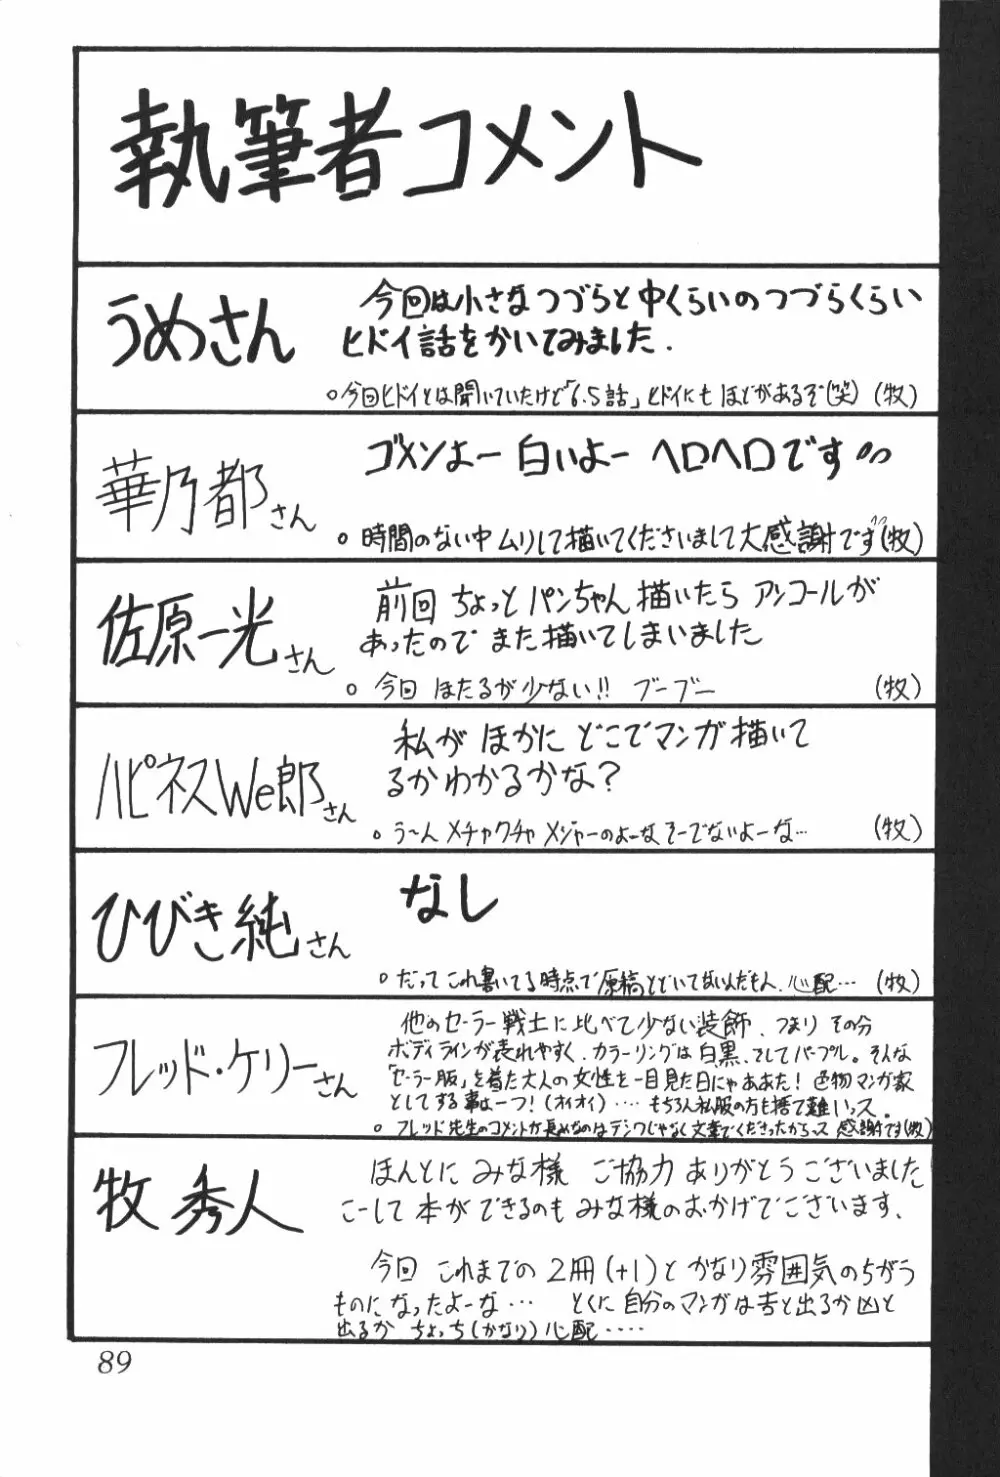 執筆者コメント
うめさん
今回は小さなつづらと中くらいのつづらくらい
ヒドイ話をかいてみました.
○今回ヒドイとは聞いていたけど「6.5話」ヒドイにもほどがあるぞ(笑) (牧)
華乃都さん
ゴメンよー 白いよー ヘロヘロです
○時間のない中ムリして描いてくださいまして大感謝です(牧)
佐原一光さん
前回 ちょっとパンちゃん描いたら アンコールが
あったので また描いてしまいました
○今回 ほたるが少ない!! ブーブー (牧)
ハピネスWe郎さん
私が ほかに どこでマンガ描いて
るかわかるかな?
○う〜ん メチャクチャ メジャーのよーなそーでないよーな… (牧)
ひびき純さん
なし
○だってこれ書いてる時点で原稿とどいてないんだもん、心配… (牧)
フレッド・ケリーさん
他のセーラー戦士に比べて少ない装飾、つまり その分
ボディラインが表れやすく、カラーリングは白黒、そしてパープル。そんな
「セーラー服」を着た大人の女性を一目見た日にゃああた! 色物マンガ家
としてする事は一つ!(オイオイ)‥‥もちろん私服の方も捨て難いっス。
○フレッド先生のコメントが長めなのはデンワじゃなく文章でくださったからっス 感謝です(牧)
牧 秀人
ほんとに みな様 ご協力 ありがとうございました
こーして本ができるのもみな様のおかげでございます、
今回 これまでの2冊(+1)とかなり雰囲気のちがう
ものになったよーな… とくに自分のマンガは吉と出るか凶と
出るか ちょっち(かなり)心配‥‥
89